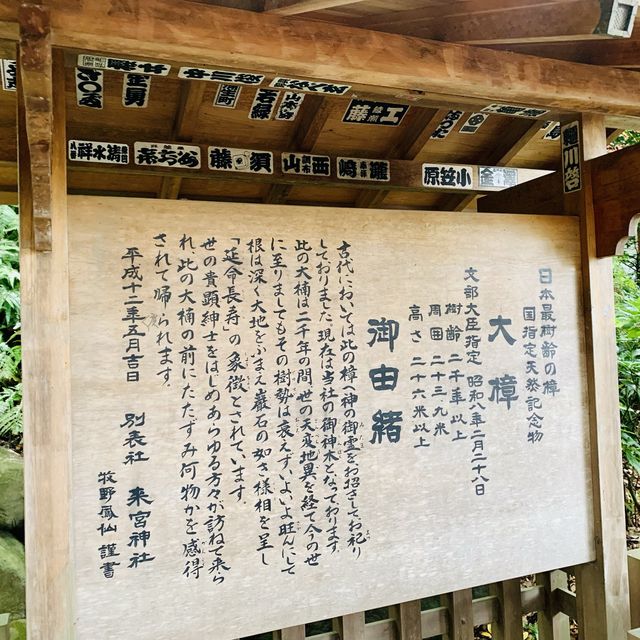 日本最樹齢の樟
国指定天然記念物
大樟
文部大臣指定 昭和八年二月二十八日
樹齢 二千年以上
周囲 二十三、九米
高さ 二十六米以上
御由緒
古代においては此の樟へ神の御霊をお招きしてお祀り
しておりました 現在は当社の御神木となっております。
此の大楠は二千年の間、世の天変地異を経て今の世
に至りましてもその樹勢は衰えず、いよいよ旺んにして
根は深く大地をふまえ巌石の如き様相を呈し
「延命長寿」の象徴とされています。
世の貴顕紳士をはじめあらゆる方々が訪ねて来ら
れ、此の大楠の前にたたずみ何物かを感得
されて帰られます。
平成十二年五月吉日
別表社 来宮神社
牧野鳳仙 謹書
小笠原
西山
須藤
清水祥
工藤